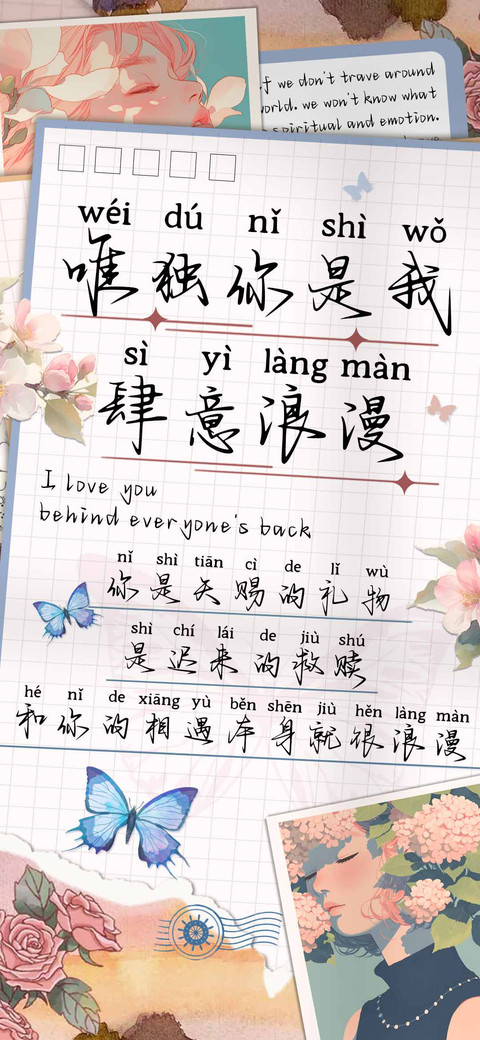 if we don't trave around
world. we won't know what
spiritual and emotion.
wéi dú nǐ shì wǒ
唯独你是我
sì yì làng màn
肆意浪漫
I love you
behind everyone's back
nǐ shì tiān cì de lǐ wù
你是天赐的礼物
shì chí lái de jiù shú
是迟来的救赎
hé nǐ de xiāng yù běn shēn jiù hěn làng màn
和你的相遇本身就很浪漫